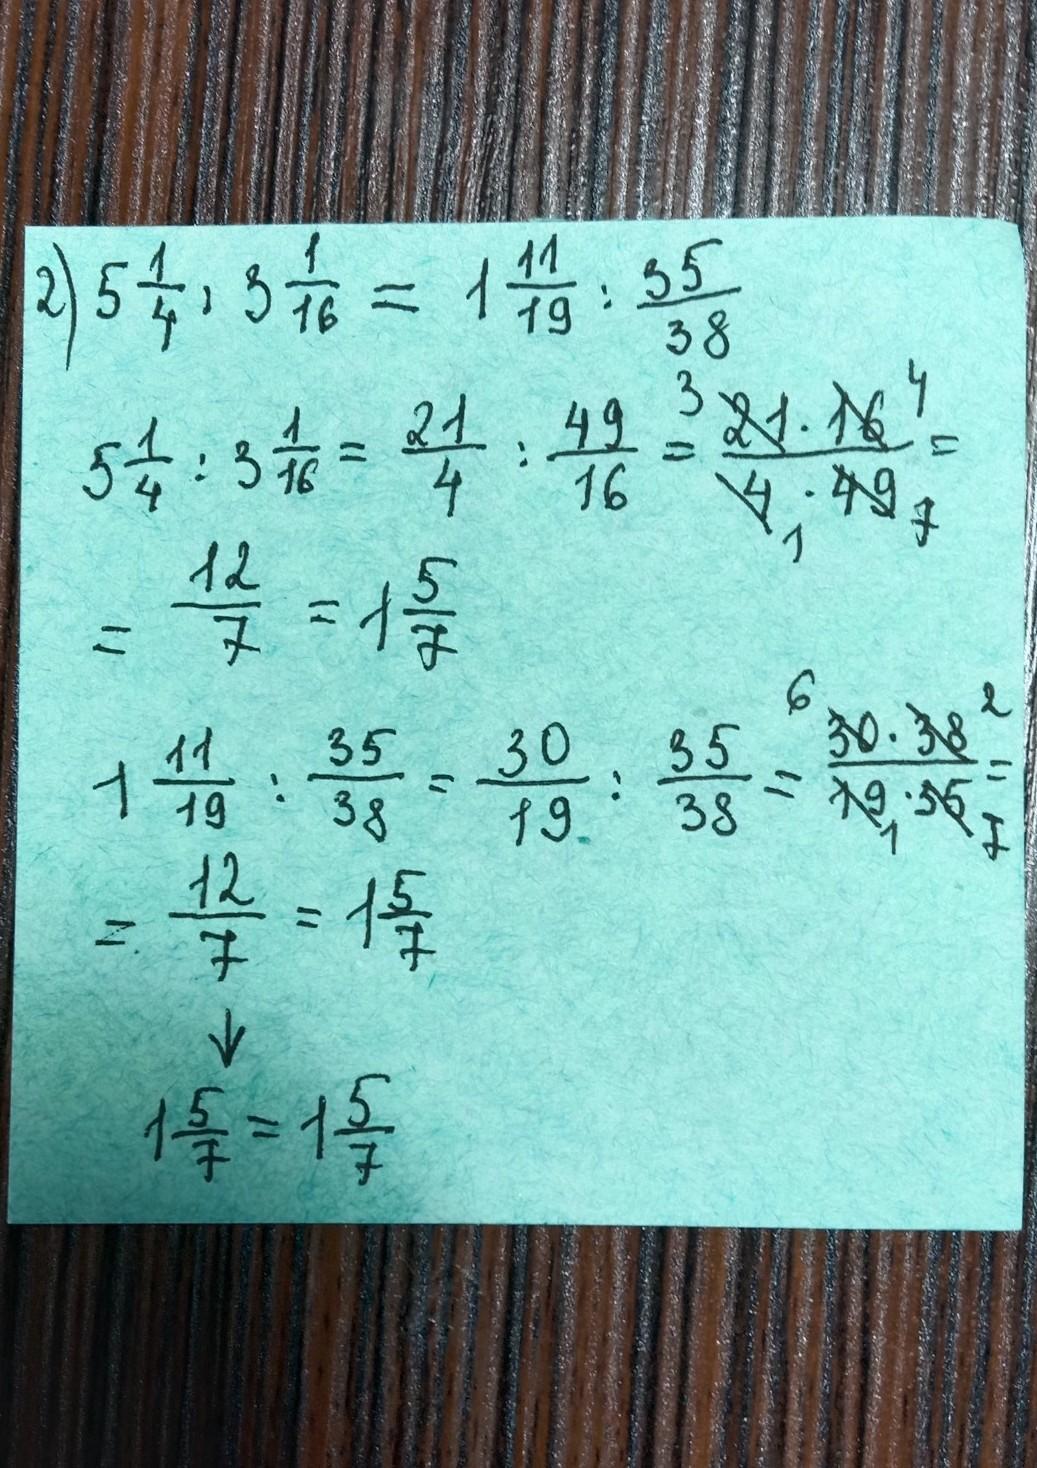 2) 5 1/4 : 3 1/16 = 1 11/19 : 35/38
5 1/4 : 3 1/16 = 21/4 : 49/16 = 3 21 · 16 4 / 4 1 · 49 7 =
= 12/7 = 1 5/7
1 11/19 : 35/38 = 30/19 : 35/38 = 6 30 · 38 2 / 19 1 · 35 7 =
= 12/7 = 1 5/7
↓
1 5/7 = 1 5/7